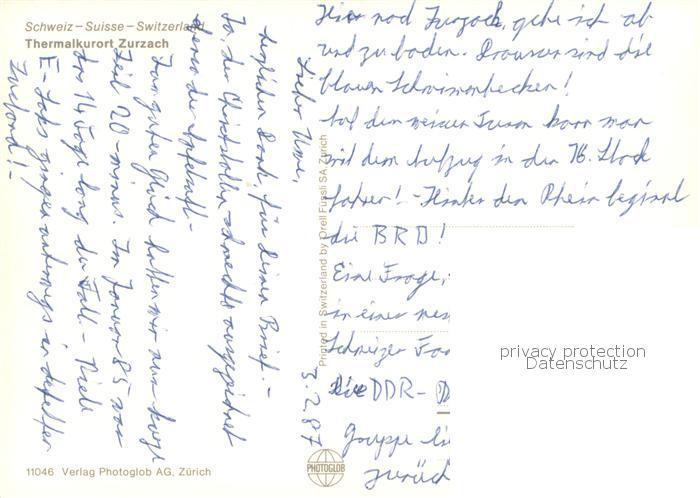 Schweiz – Suisse – Switzerland
Thermalkurort Zurzach
3.2.87
Lieber Uwe,
herzlichen Dank, für Deinen Brief. –
Ja der Christstollen schmeckte ausgezeichnet
ebenso die
Zum guten Glück hatten wir nur kurze
Zeit 20 minus. Im Januar 85 war
das 14 Tage lang der Fall. – Viele
E-Loks gingen unterwegs in defekten
Zustand! –
Hier nach Zurzach, gehe ich ab
und zu baden. Draussen sind die
blauen Schwimmbecken!
Auf dem weissen Turm kann man
mit dem Aufzug in den 16. Stock
fahren! – Hinter dem Rhein beginnt
die BRD!
Eine Frage,
in einer
Schweizer
die DDR –
Gruppe
zurück
Printed in Switzerland by Orell Füssli SA, Zürich
privacy protection
Datenschutz
11046 Verlag Photoglob AG, Zürich
PHOTOGLOB